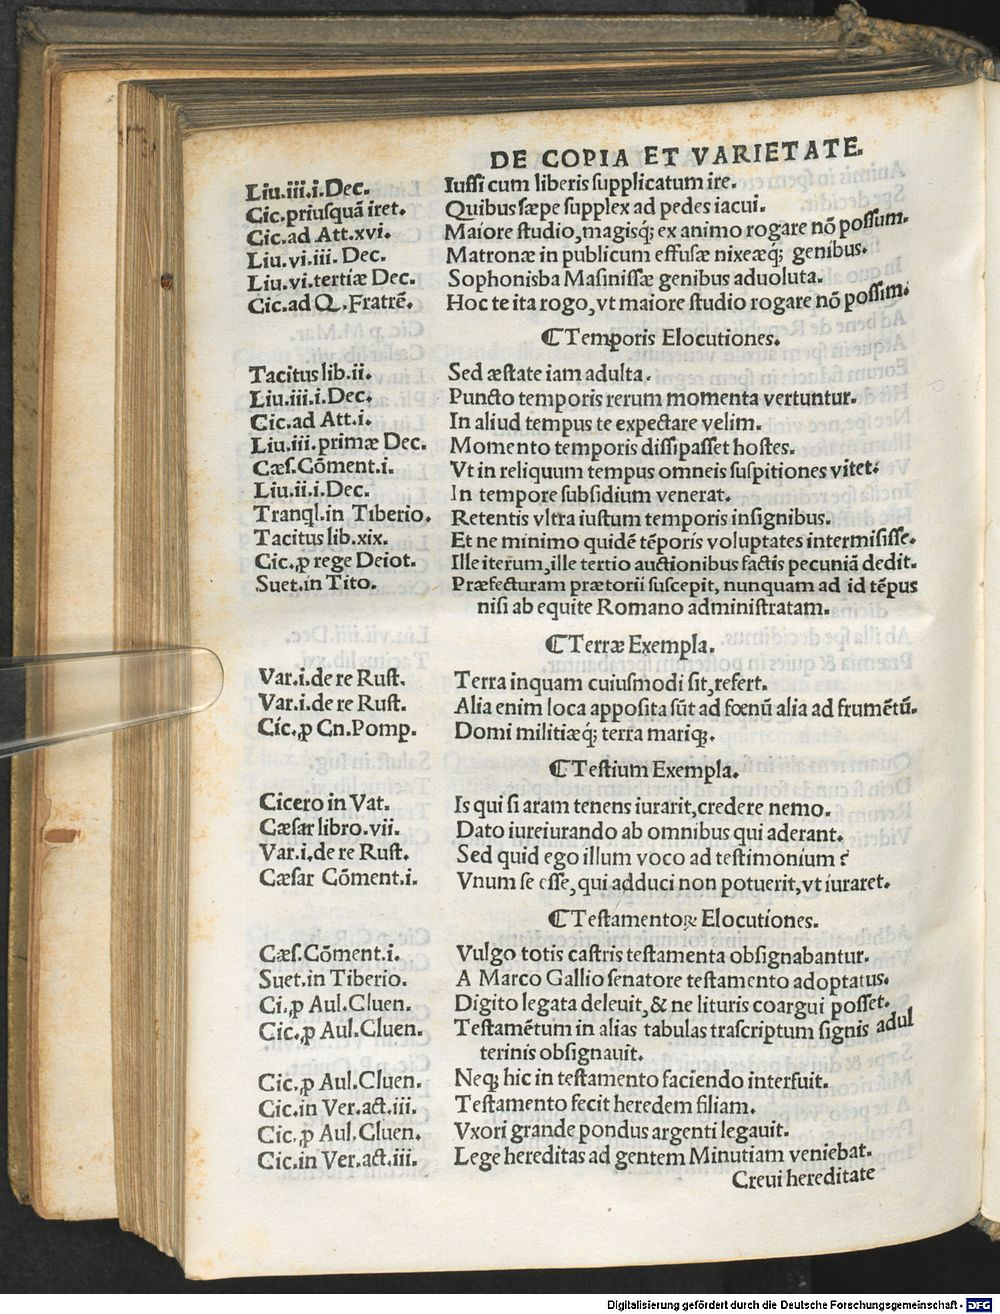 DE COPIA ET VARIETATE.
Liu.iii.i.Dec. Iuſſi cum liberis ſupplicatum ire.
Cic.priuſquā iret. Quibus ſæpe ſupplex ad pedes iacui.
Cic.ad Att.xvi. Maiore ſtudio,magiſq; ex animo rogare nō poſſum.
Liu.vi.iii. Dec. Matronæ in publicum effuſæ nixeæq; genibus.
Liu.vi.tertiæ Dec. Sophonisba Maſiniſſæ genibus aduoluta.
Cic.ad Q.Fratrē. Hoc te ita rogo,vt maiore ſtudio rogare nō poſſim.
⸿Temporis Elocutiones.
Tacitus lib.ii. Sed æſtate iam adulta.
Liu.iii.i.Dec. Puncto temporis rerum momenta vertuntur.
Cic.ad Att.i. In aliud tempus te expectare velim.
Liu.iii.primæ Dec. Momento temporis diſſipaſſet hoſtes.
Cæſ.Cōment.i. Vt in reliquum tempus omneis ſuſpitiones vitet.
Liu.ii.i.Dec. In tempore ſubſidium venerat.
Tranql.in Tiberio. Retentis vltra iuſtum temporis inſignibus.
Tacitus lib.xix. Et ne minimo quidē tēporis voluptates intermiſiſſe.
Cic.ꝓ rege Deiot. Ille iterum,ille tertio auctionibus factis pecuniā dedit.
Suet.in Tito. Præfecturam prætorii ſuſcepit, nunquam ad id tēpus
niſi ab equite Romano adminiſtratam.
⸿Terræ Exempla.
Var.i.de re Ruſt. Terra inquam cuiuſmodi ſit,refert.
Var.i.de re Ruſt. Alia enim loca appoſita ſūt ad fœnū alia ad frumētū.
Cic.ꝓ Cn.Pomp. Domi militiæq; terra mariq;.
⸿Teſtium Exempla.
Cicero in Vat. Is qui ſi aram tenens iurarit,credere nemo.
Cæſar libro.vii. Dato iureiurando ab omnibus qui aderant.
Var.i.de re Ruſt. Sed quid ego illum voco ad teſtimonium?
Cæſar Cōment.i. Vnum ſe eſſe,qui adduci non potuerit,vt iuraret.
⸿Teſtamentoꝝ Elocutiones.
Cæſ.Cōment.i. Vulgo totis caſtris teſtamenta obſignabantur.
Suet.in Tiberio. A Marco Gallio ſenatore teſtamento adoptatus.
Ci.ꝓ Aul.Cluen. Digito legata deleuit,& ne lituris coargui poſſet.
Cic.ꝓ Aul.Cluen. Teſtamētum in alias tabulas traſcriptum ſignis adul
terinis obſignauit.
Cic.ꝓ Aul.Cluen. Neq; hic in teſtamento faciendo interfuit.
Cic.in Ver.act.iii. Teſtamento fecit heredem filiam.
Cic.ꝓ Aul.Cluen. Vxori grande pondus argenti legauit.
Cic.in Ver.act.iii. Lege hereditas ad gentem Minutiam veniebat.
Creui hereditate
Digitalisierung gefördert durch die Deutsche Forschungsgemeinschaft - DFG